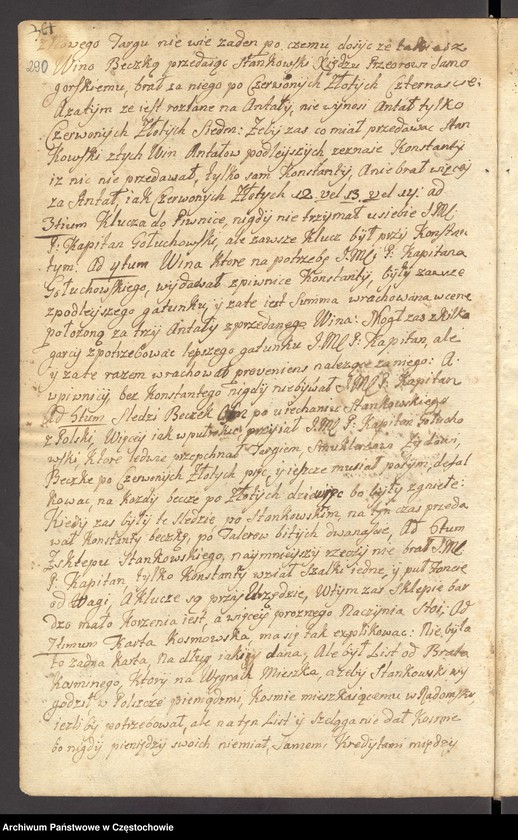 290
Targu nie wie zaden po czemu, dosyć ze
Wino Beczkę przedaiąc Stankowski Xiędzu Przeorowi Jasno
gorskiemu, brał za niego po Czerwonych Złotych Czternascie.
Azatym ze iest rozlane na Antały, nie wynosi Antał tylko
Czerwonych Złotych Siedm: Zeby zas co miał przedawac Stan
kowski złych Win Antałow podleyszych zeznaie Konstanty
iz nic nie przedawał, tylko sam Konstanty, Anie brał więcey
za Antał, iak Czerwonych Złotych 12. vel 13. vel 14. ad
3tium Klucza do Piwnice, nigdy nie trzymał u siebie J.Mć
P. Kapitan Gołuchowski, ale zawsze Klucz był przy Konstan
tym. Ad 4tum Wina ktore na potrzebę J.Mci P. Kapitana
Gołuchowskiego, wydawał zpiwnice Konstanty, były zawsze
zpodleyszego gatunku, y zate iest Summa wrachowana wcenę
połozoną za trzy Antały zprzedanego Wina: Mogł zas zkilka
garcy zpotrzebowac lepszego gatunku J.Mć P. Kapitan, ale
y zate razem wrachował proveniens nalezące zaniego: A
wpiwnicy, bez Konstantego nigdy niebywał J.Mć P. Kapitan
Ad 5tum Sledzi Beczek po uiechaniu Stankowskiego
z Polski, Więcey iak wpułrokie przysłał J.Mć P. Kapitan Głucho
wski, Ktore ledwie przepchnął Targiem, Zydowi,
Beczkę po Czerwonych Złotych pięc, y ieszcze musiał potym, defal
kowac, na kozdy beczce po Złotych dziewięc bo były zgniełe:
Kiedy zas były te Sledzie po Stankowskim, na tyn czas przeda
wał Konstanty beczkę, po Talerow bitych dwanascie, Ad 6tum
Zsklepu Stankowskiego, naymnieyszy rzeczy nie brał J.Mć
P. Kapitan tylko Konstanty wziął Szalki iedne, y puł
od Wagi, A klucze są przy Urzędzie, Wtym zas Sklepie bar
dzo mało Korzenia iest, a więcey proznego Naczynia Stoi. Ad
7timum Karta Kosmowska, ma się tak explikowac: Nie była
to zadna karta, na dług iakiey dana, Ale był List od Brata
Kosminego, Ktory na Węgrach Mieszka, azeby Stankowski wy
godził w Polszcze pieniędzmi, Kosmie mieszkaiącemu w Radomsku
iezli by potrzebował, ale na tyn List y Szeląga nie dał Kosmie
bo nigdy pieniędzy swoich niemiał, Samemi Kredytami między
Archiwum Państwowe w Częstochowie